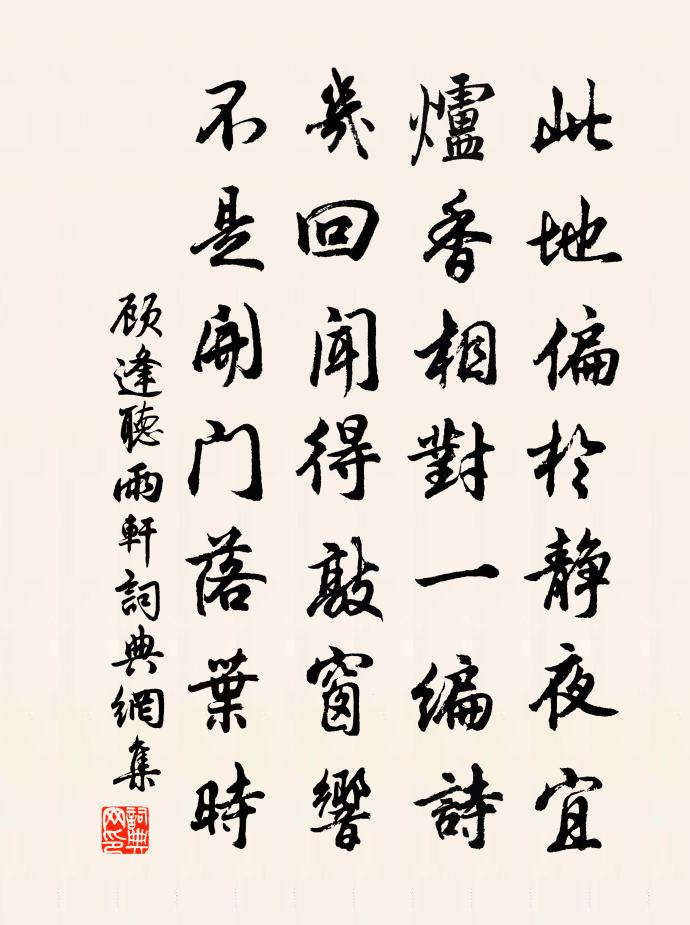 此地偏於静夜宜
爐香相對一編詩
幾回聞得敲窗響
不是開门落葉時
顾逢聽雨軒詞典網集
詞典
网印